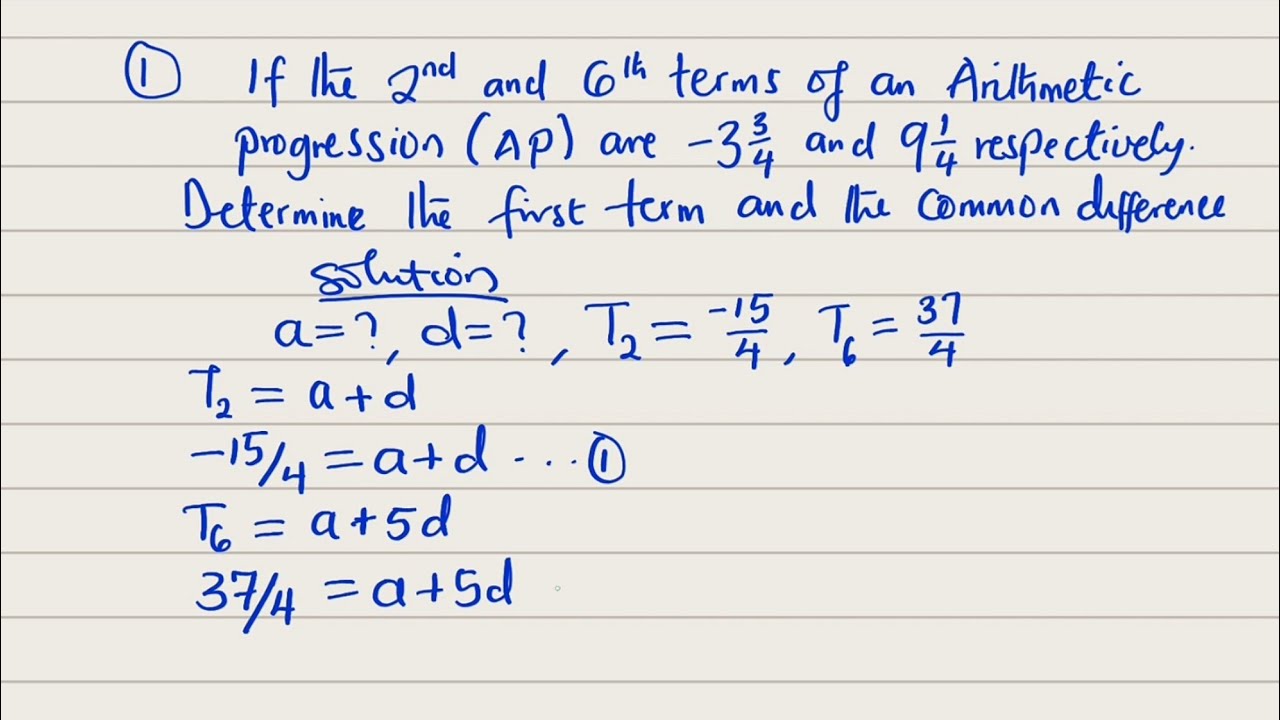 ① If the 2nd and 6th terms of an Arithmetic
progression (AP) are -3 3/4 and 9 1/4 respectively.
Determine the first term and the common difference
solution
a=?, d=?, T₂ = -15/4, T₆ = 37/4
T₂ = a+d
-15/4 = a+d ... ①
T₆ = a+5d
37/4 = a+5d